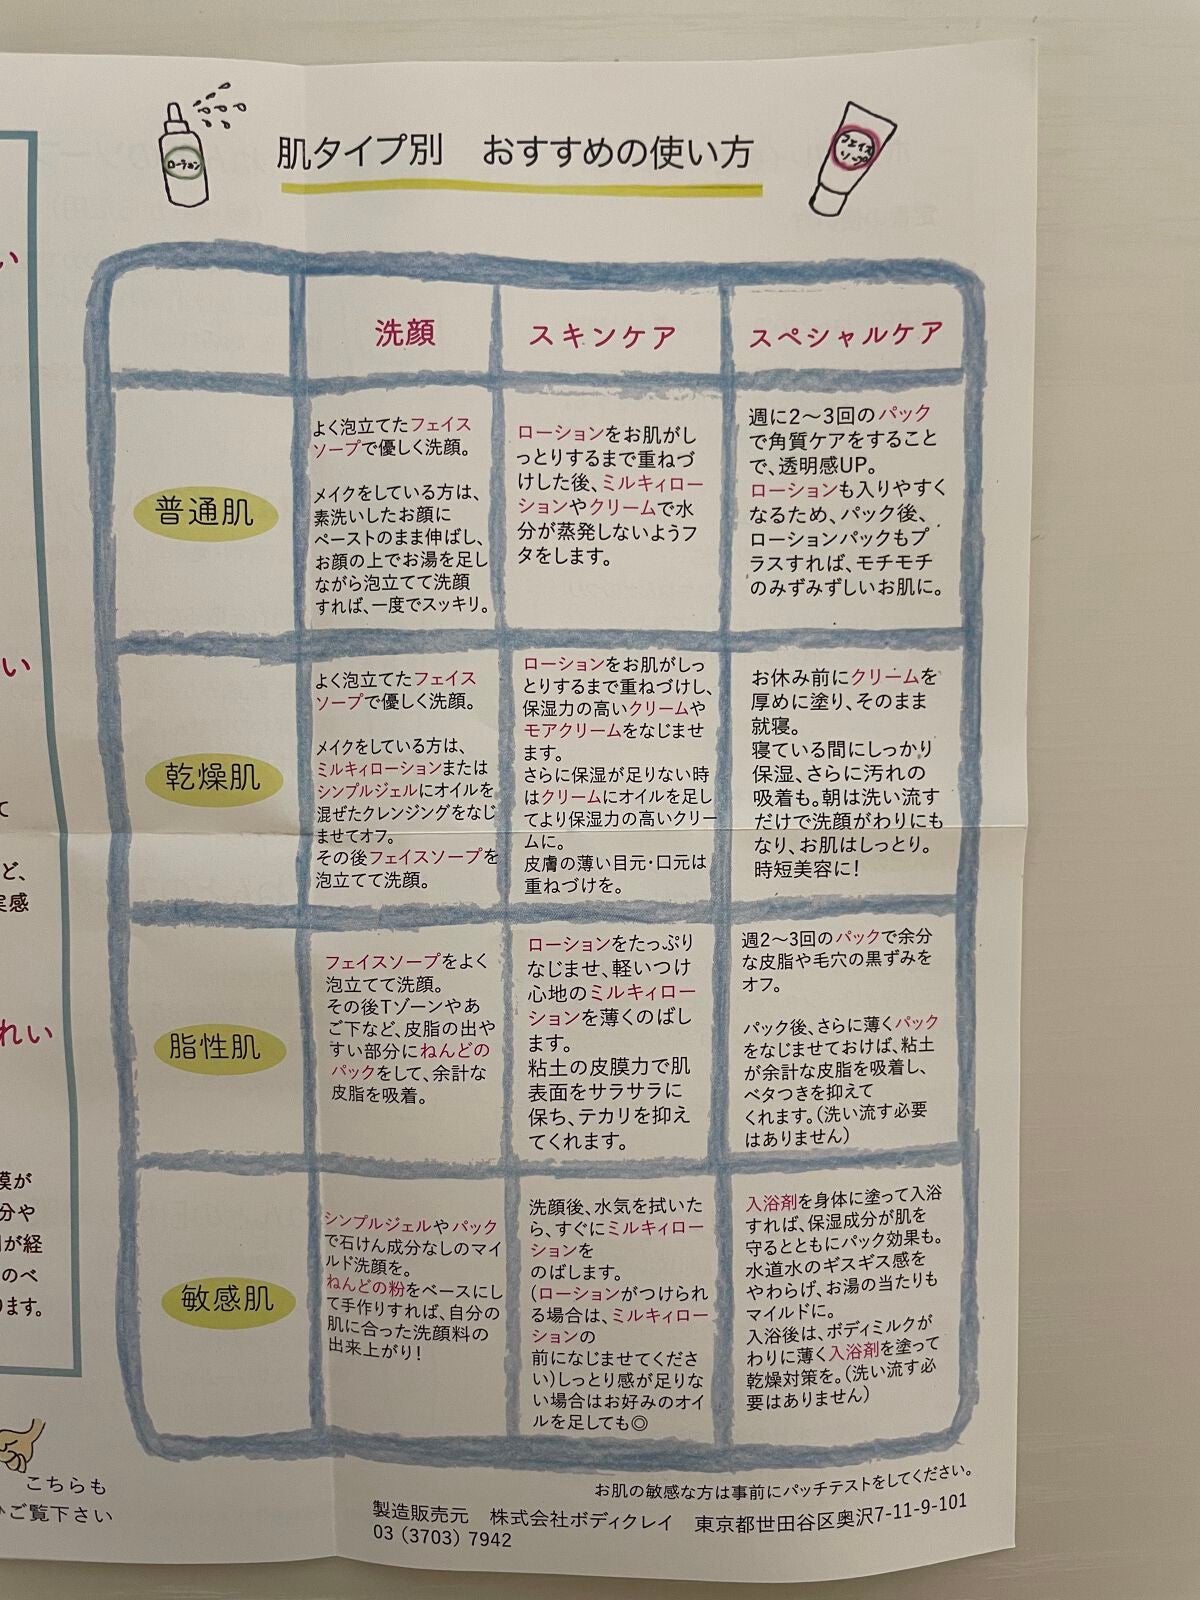 ローション
肌タイプ別 おすすめの使い方
フェイス
ソープ
洗顔
スキンケア
スペシャルケア
普通肌
よく泡立てたフェイス
ソープで優しく洗顔。
メイクをしている方は、
素洗いしたお顔に
ペーストのまま伸ばし、
お顔の上でお湯を足し
ながら泡立てて洗顔
すれば、一度でスッキリ。
ローションをお肌がし
っとりするまで重ねづ
けした後、ミルキィロー
ションやクリームで水
分が蒸発しないようフ
タをします。
週に2〜3回のパック
で角質ケアをすること
で、透明感UP。
ローションも入りやすく
なるため、パック後、
ローションパックもプ
ラスすれば、モチモチ
のみずみずしいお肌に。
乾燥肌
よく泡立てたフェイス
ソープで優しく洗顔。
メイクをしている方は、
ミルキィローションまたは
シンプルジェルにオイルを
混ぜたクレンジングをなじ
ませてオフ。
その後フェイスソープを
泡立てて洗顔。
ローションをお肌がしっ
とりするまで重ねづけし、
保湿力の高いクリームや
モアクリームをなじませ
ます。
さらに保湿が足りない時
はクリームにオイルを足し
てより保湿力の高いクリー
ムに。
皮膚の薄い目元・口元は
重ねづけを。
お休み前にクリームを
厚めに塗り、そのまま
就寝。
寝ている間にしっかり
保湿、さらに汚れの
吸着も。朝は洗い流す
だけで洗顔がわりにも
なり、お肌はしっとり。
時短美容に!
脂性肌
フェイスソープをよく
泡立てて洗顔。
その後Tゾーンやあ
ご下など、皮脂の出や
すい部分にねんどの
パックをして、余計な
皮脂を吸着。
ローションをたっぷり
なじませ、軽いつけ
心地のミルキィロー
ションを薄くのばし
ます。
粘土の皮膜力で肌
表面をサラサラに
保ち、テカリを抑え
てくれます。
週2〜3回のパックで余分
な皮脂や毛穴の黒ずみを
オフ。
パック後、さらに薄くパック
をなじませておけば、粘土
が余計な皮脂を吸着し、
ベタつきを抑えて
くれます。(洗い流す必要
はありません)
敏感肌
シンプルジェルやパック
で石けん成分なしのマイ
ルド洗顔を。
ねんどの粉をベースにし
て手作りすれば、自分の
肌に合った洗顔料の
出来上がり!
洗顔後、水気を拭いた
ら、すぐにミルキィロー
ションを
のばします。
(ローションがつけられ
る場合は、ミルキィロー
ションの
前になじませてくださ
い)しっとり感が足りな
い場合はお好みのオイ
ルを足しても◎
入浴剤を身体に塗って入浴
すれば、保湿成分が肌を
守るとともにパック効果も。
水道水のギスギス感を
やわらげ、お湯の当たりも
マイルドに。
入浴後は、ボディミルクが
わりに薄く入浴剤を塗って
乾燥対策を。(洗い流す必
要はありません)
お肌の敏感な方は事前にパッチテストをしてください。
製造販売元 株式会社ボディクレイ 東京都世田谷区奥沢7-11-9-101
03 (3703) 7942
い
い
て
ど、
実感
れい
膜が
分や
が経
のべ
ります。
こちらも
ご覧下さい